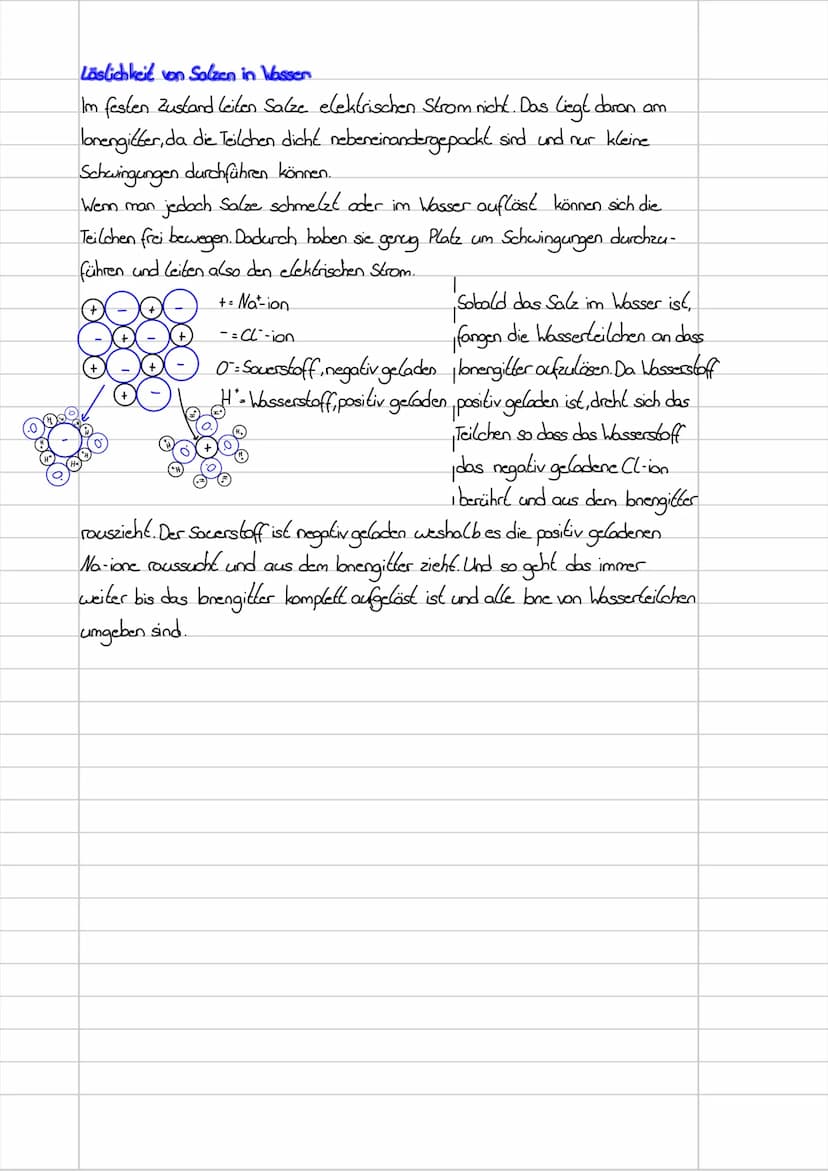 Löslichkeit von Salzen in Wasser
Im festen Zustand leiten Salze elektrischen Strom nicht. Das liegt daran am
Ionengitter, da die Teilchen dicht nebeneinandergepackt sind und nur kleine
Schwingungen durchführen können.
Wenn man jedoch Salze schmelzt oder im Wasser auflöst können sich die
Teilchen frei bewegen. Dadurch haben sie genug Platz um Schwingungen durchzu-
führen und leiten also den elektrischen Strom.
+ = Na⁺-ion
- = CL⁻-ion
O⁻ = Sauerstoff, negativ geladen
H⁺ = Wasserstoff, positiv geladen
Sobald das Salz im Wasser ist,
fangen die Wasserteilchen an dass
Ionengitter aufzulösen. Da Wasserstoff
positiv geladen ist, dreht sich das
Teilchen so dass das Wasserstoff
das negativ geladene Cl-ion
berührt und aus dem Ionengitter
rauszieht. Der Sauerstoff ist negativ geladen weshalb es die positiv geladenen
Na-ione raussucht und aus dem Ionengitter zieht. Und so geht das immer
weiter bis das Ionengitter komplett aufgelöst ist und alle Ione von Wasserteilchen
umgeben sind.